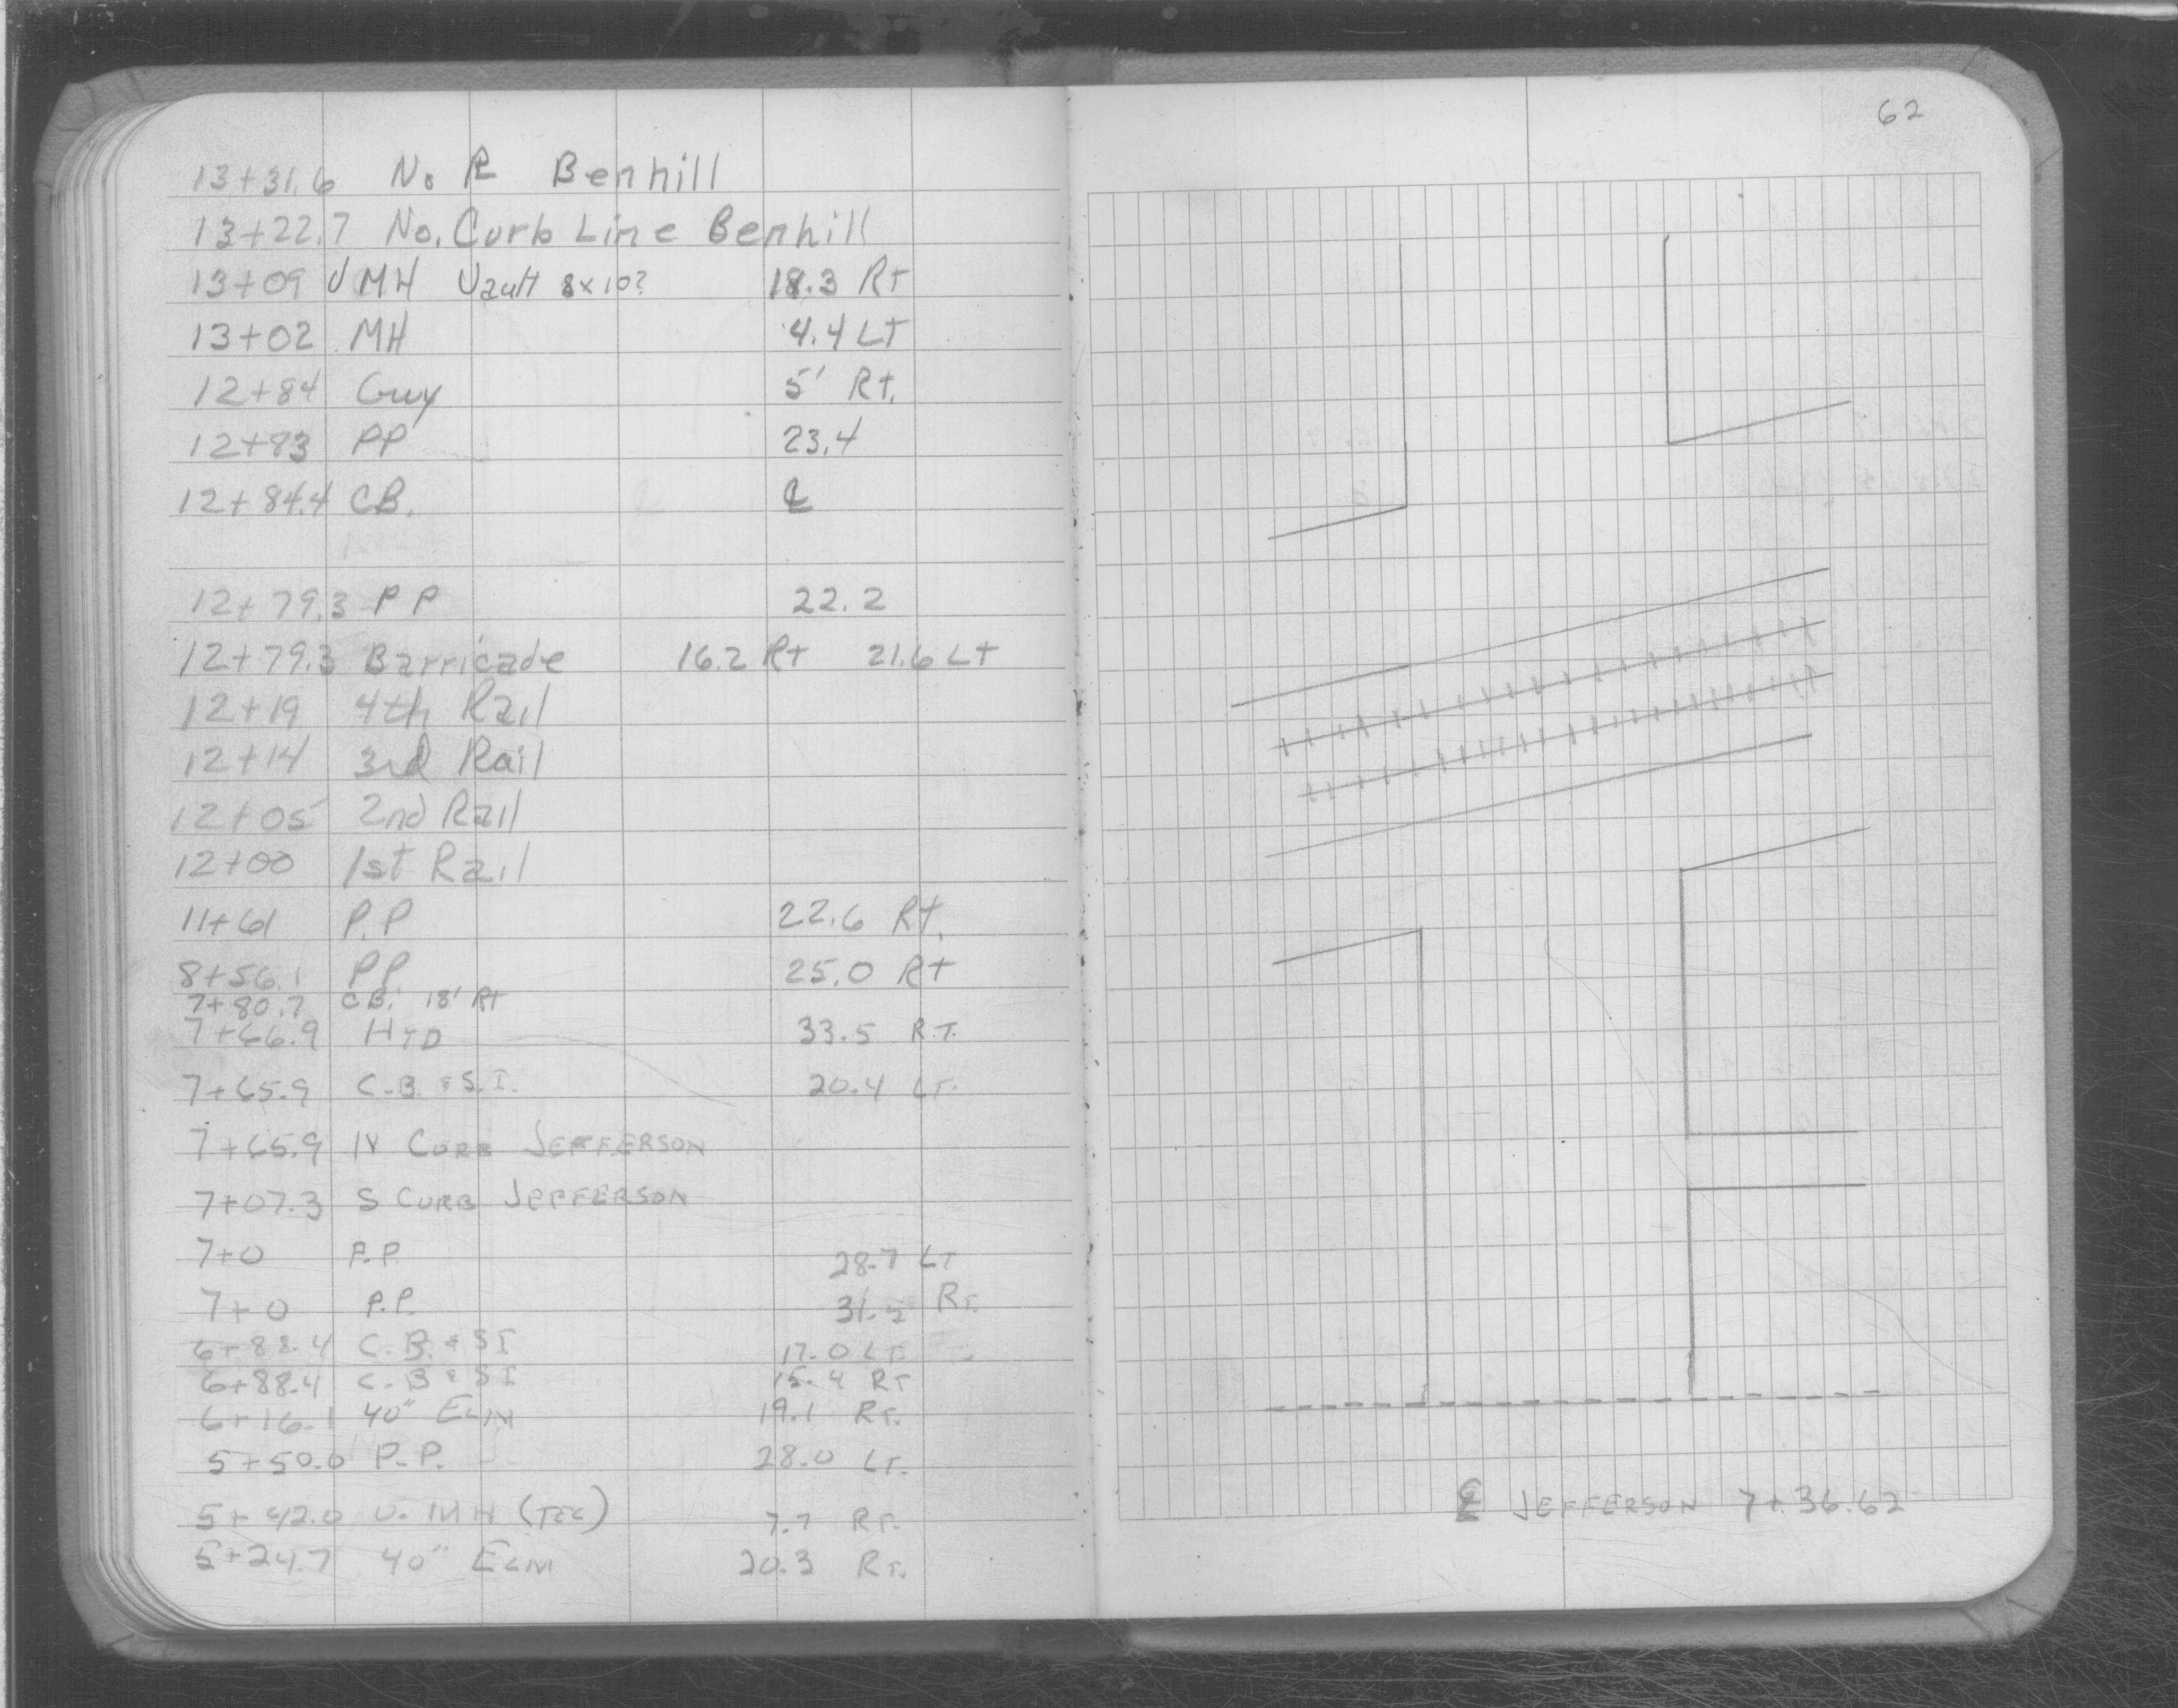 62
13+31.6 No. R Benhill
13+22.7 No. Curb Line Benhill
13+09 U MH Vault 8x10? 18.3 Rt
13+02 MH 4.4 LT
12+84 Guy 5' Rt.
12+83 PP 23.4
12+84.4 CB. ℄
12+79.3 PP 22.2
12+79.3 Barricade 16.2 Rt 21.6 Lt
12+19 4th Rail
12+14 3rd Rail
12+05 2nd Rail
12+00 1st Rail
11+61 P.P 22.6 Rt.
8+56.1 PP 25.0 Rt
7+80.7 CB. 18' Rt
7+66.9 HYD 33.5 RT.
7+65.9 C.B. & S.I. 20.4 LT.
7+65.9 N CURB JEFFERSON
7+07.3 S CURB JEFFERSON
7+0 P.P. 28.7 LT
7+0 P.P. 31.5 RT.
6+88.4 C.B. & SI 17.0 LT.
6+88.4 C.B & SI 15.4 RT
6+16.1 40" ELM 19.1 RT.
5+50.0 P.P. 28.0 LT.
5+42.0 U. MH (TEC) 7.7 RT.
5+24.7 40" ELM 20.3 RT.
℄ JEFFERSON 7+36.62